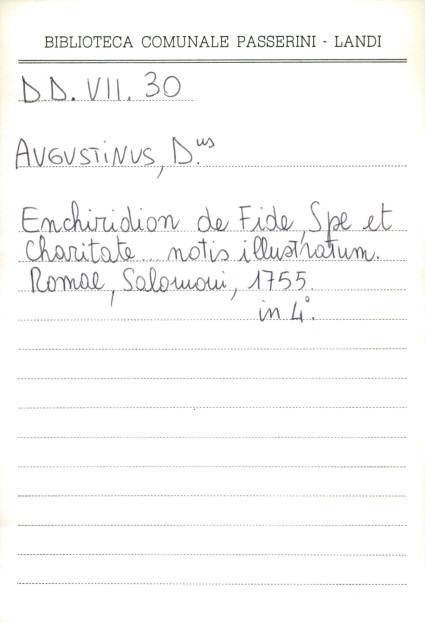 BIBLIOTECA COMUNALE PASSERINI - LANDI
DD. VII. 30
AUGUSTINUS, D.us
Enchiridion de Fide, Spe et
Charitate... notis illustratum.
Romae, Salomoni, 1755.
in 4°.